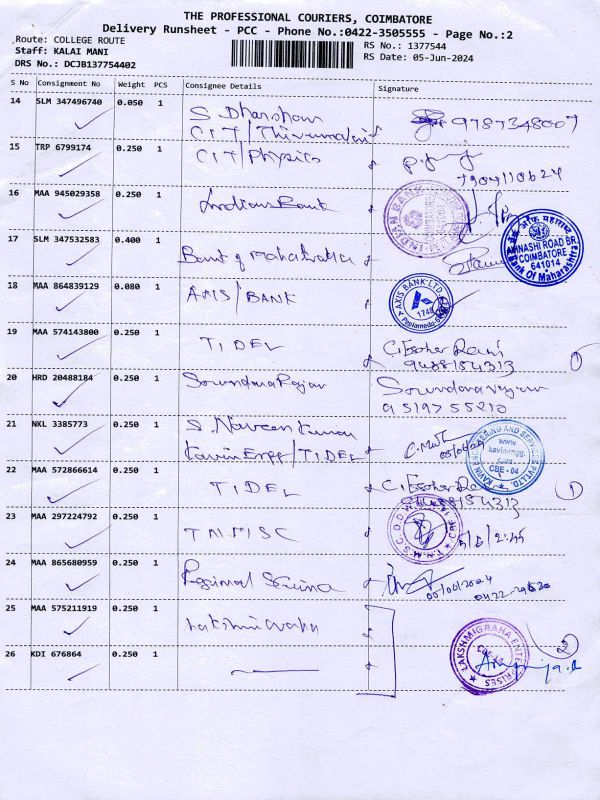 THE PROFESSIONAL COURIERS, COIMBATORE
Delivery Runsheet - PCC - Phone No.:0422-3505555 - Page No.:2
Route: COLLEGE ROUTE
Staff: KALAI MANI
DRS No.: DCJB137754402
RS No.: 1377544
RS Date: 05-Jun-2024
S No Consignment No Weight PCS Consignee Details Signature
14 SLM 347496740 0.050 1 S. Dharshan
CIT/ 9787348007
15 TRP 6799174 0.250 1 CIT/Physics
7904110624
16 MAA 945029358 0.250 1 Indian Bank
INDIAN BANK
17 SLM 347532583 0.400 1 Bank of
AVINASHI ROAD BR.
COIMBATORE
641014
Bank of Maharashtra
18 MAA 864839129 0.080 1 AXIS/BANK
AXIS BANK LTD.
1748
19 MAA 574143800 0.250 1 TIDEL C. Esther Rani
9488154313
20 HRD 20488184 0.250 1 Soundara Rajan Soundararajan
9519755210
21 NKL 3385773 0.250 1 S. Naveen Kumar
Kavin Engg/TIDEL
www.
kavinengg.
com
CBE-04
22 MAA 572866614 0.250 1 TIDEL C. Esther Rani
9488154313
1
23 MAA 297224792 0.250 1 TNMSC
T.N.M.S.C.
24 MAA 865680959 0.250 1 Regional
05/06/2024
25 MAA 575211919 0.250 1
26 KDI 676864 0.250 1
LAKSHMIGRAHA ENTERPRISES
2